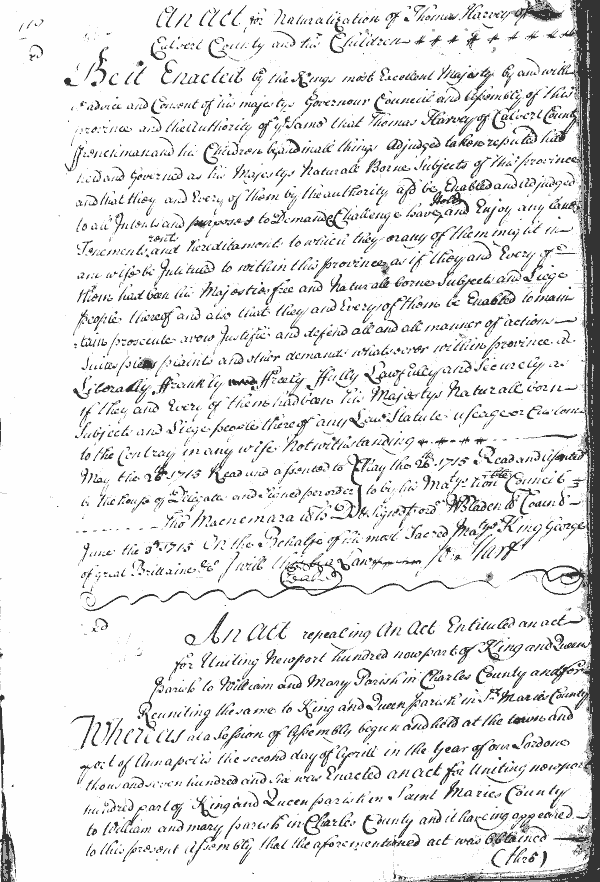 110
An Act for Naturalization of Thomas Harvey of
Calvert County and his Children
Be it Enacted by the Kings most Excellent Majesty by and with
ye advice and Consent of his majestys Governour Council and Assembly of this
province and the Authority of ye Same that Thomas Harvey of Calvert County
ffrenchman and his Children be and in all things Adjudged taken reputed had
held and Governed as his Majestys Naturale Borne Subjects of this province
and that they and Every of them by the authority afd be Enabled and adjudged
to all Intents and purposes to Demand Challenge have hold and Enjoy any lands
Tenements rents and hereditaments to which they or any of them might in
any wise be Intituled to within this province as if they and Every of
them had been his Majesties free and Naturale borne Subjects and Liege
people thereof and also that they and Every of them be Enabled to main
tain prosecute avow Justifie and defend all and all manner of actions
Suites plaints and other demands whatsoever within province as
Liberally ffrankly ffreely ffully Lawfully and Securely as
if they and Every of them had been his Majestys Naturale born
Subjects and Liege people thereof any Law Statute useage or Custom
to the Contrary in any wise Notwithstanding
May the 26th 1715 Read and assented to
by the house of Delegates and Signed per order
Tho Macnemara
May the 26th 1715 Read and assented
to by his Majtys honble Council
Signed W Bladen Cl Council
June the 3d 1715 On the Behalfe of his most Sacred Majtys King George
of great Brittaine &c I will this be a Law Jo: Hart
An Act repealing An Act Entituled an act
for Uniting Newport hundred now part of King and Queen
parish to William and Mary Parish in Charles County and for
Reuniting the same to King and Queen parish in St Maries County
Whereas at a Session of Assembly begun and held at the town and
port of Annapolis the second day of Aprill in the Year of our Lord one
thousand seven hundred and six was Enacted an act for Uniting newport
hundred part of King and Queen parish in Saint Maries County
to William and mary parish in Charles County and it haveing appeared
to this present Assembly that the aforementioned act was obtained
(thro)